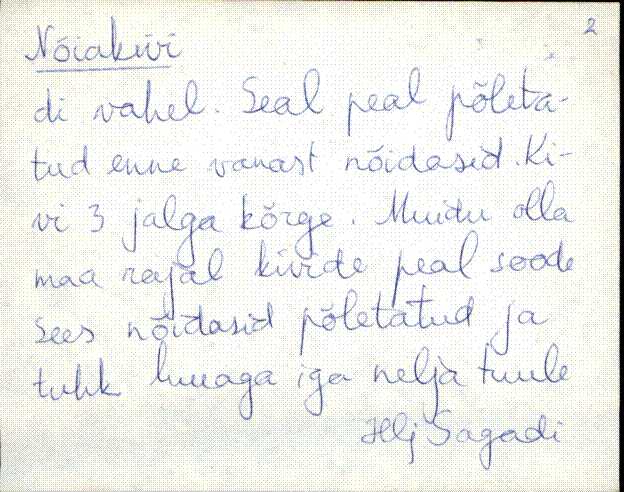 2
Nõiakivi
di vahel. Seal peal põleta-
tud enne vanast nõidasid. Ki-
vi 3 jalga kõrge. Muidu olla
maa rajal kivide peal soode
sees nõidasid põletatud ja
tuhk luuaga iga nelja tuule
Hlj Sagadi